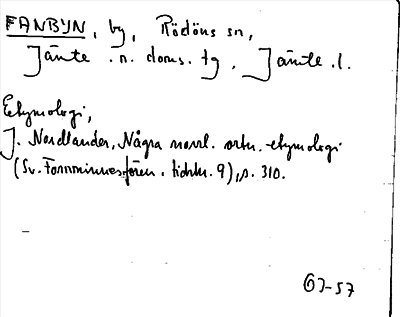 FANBYN, by, Rödöns sn,
Jämte. n. doms. tg, Jämtl. l.
Etymologi,
J. Nordlander, Några norrl. ortn. etymologi
(Sv. Fornminnesfören. tidskr. 9), s. 310.
GJ-57